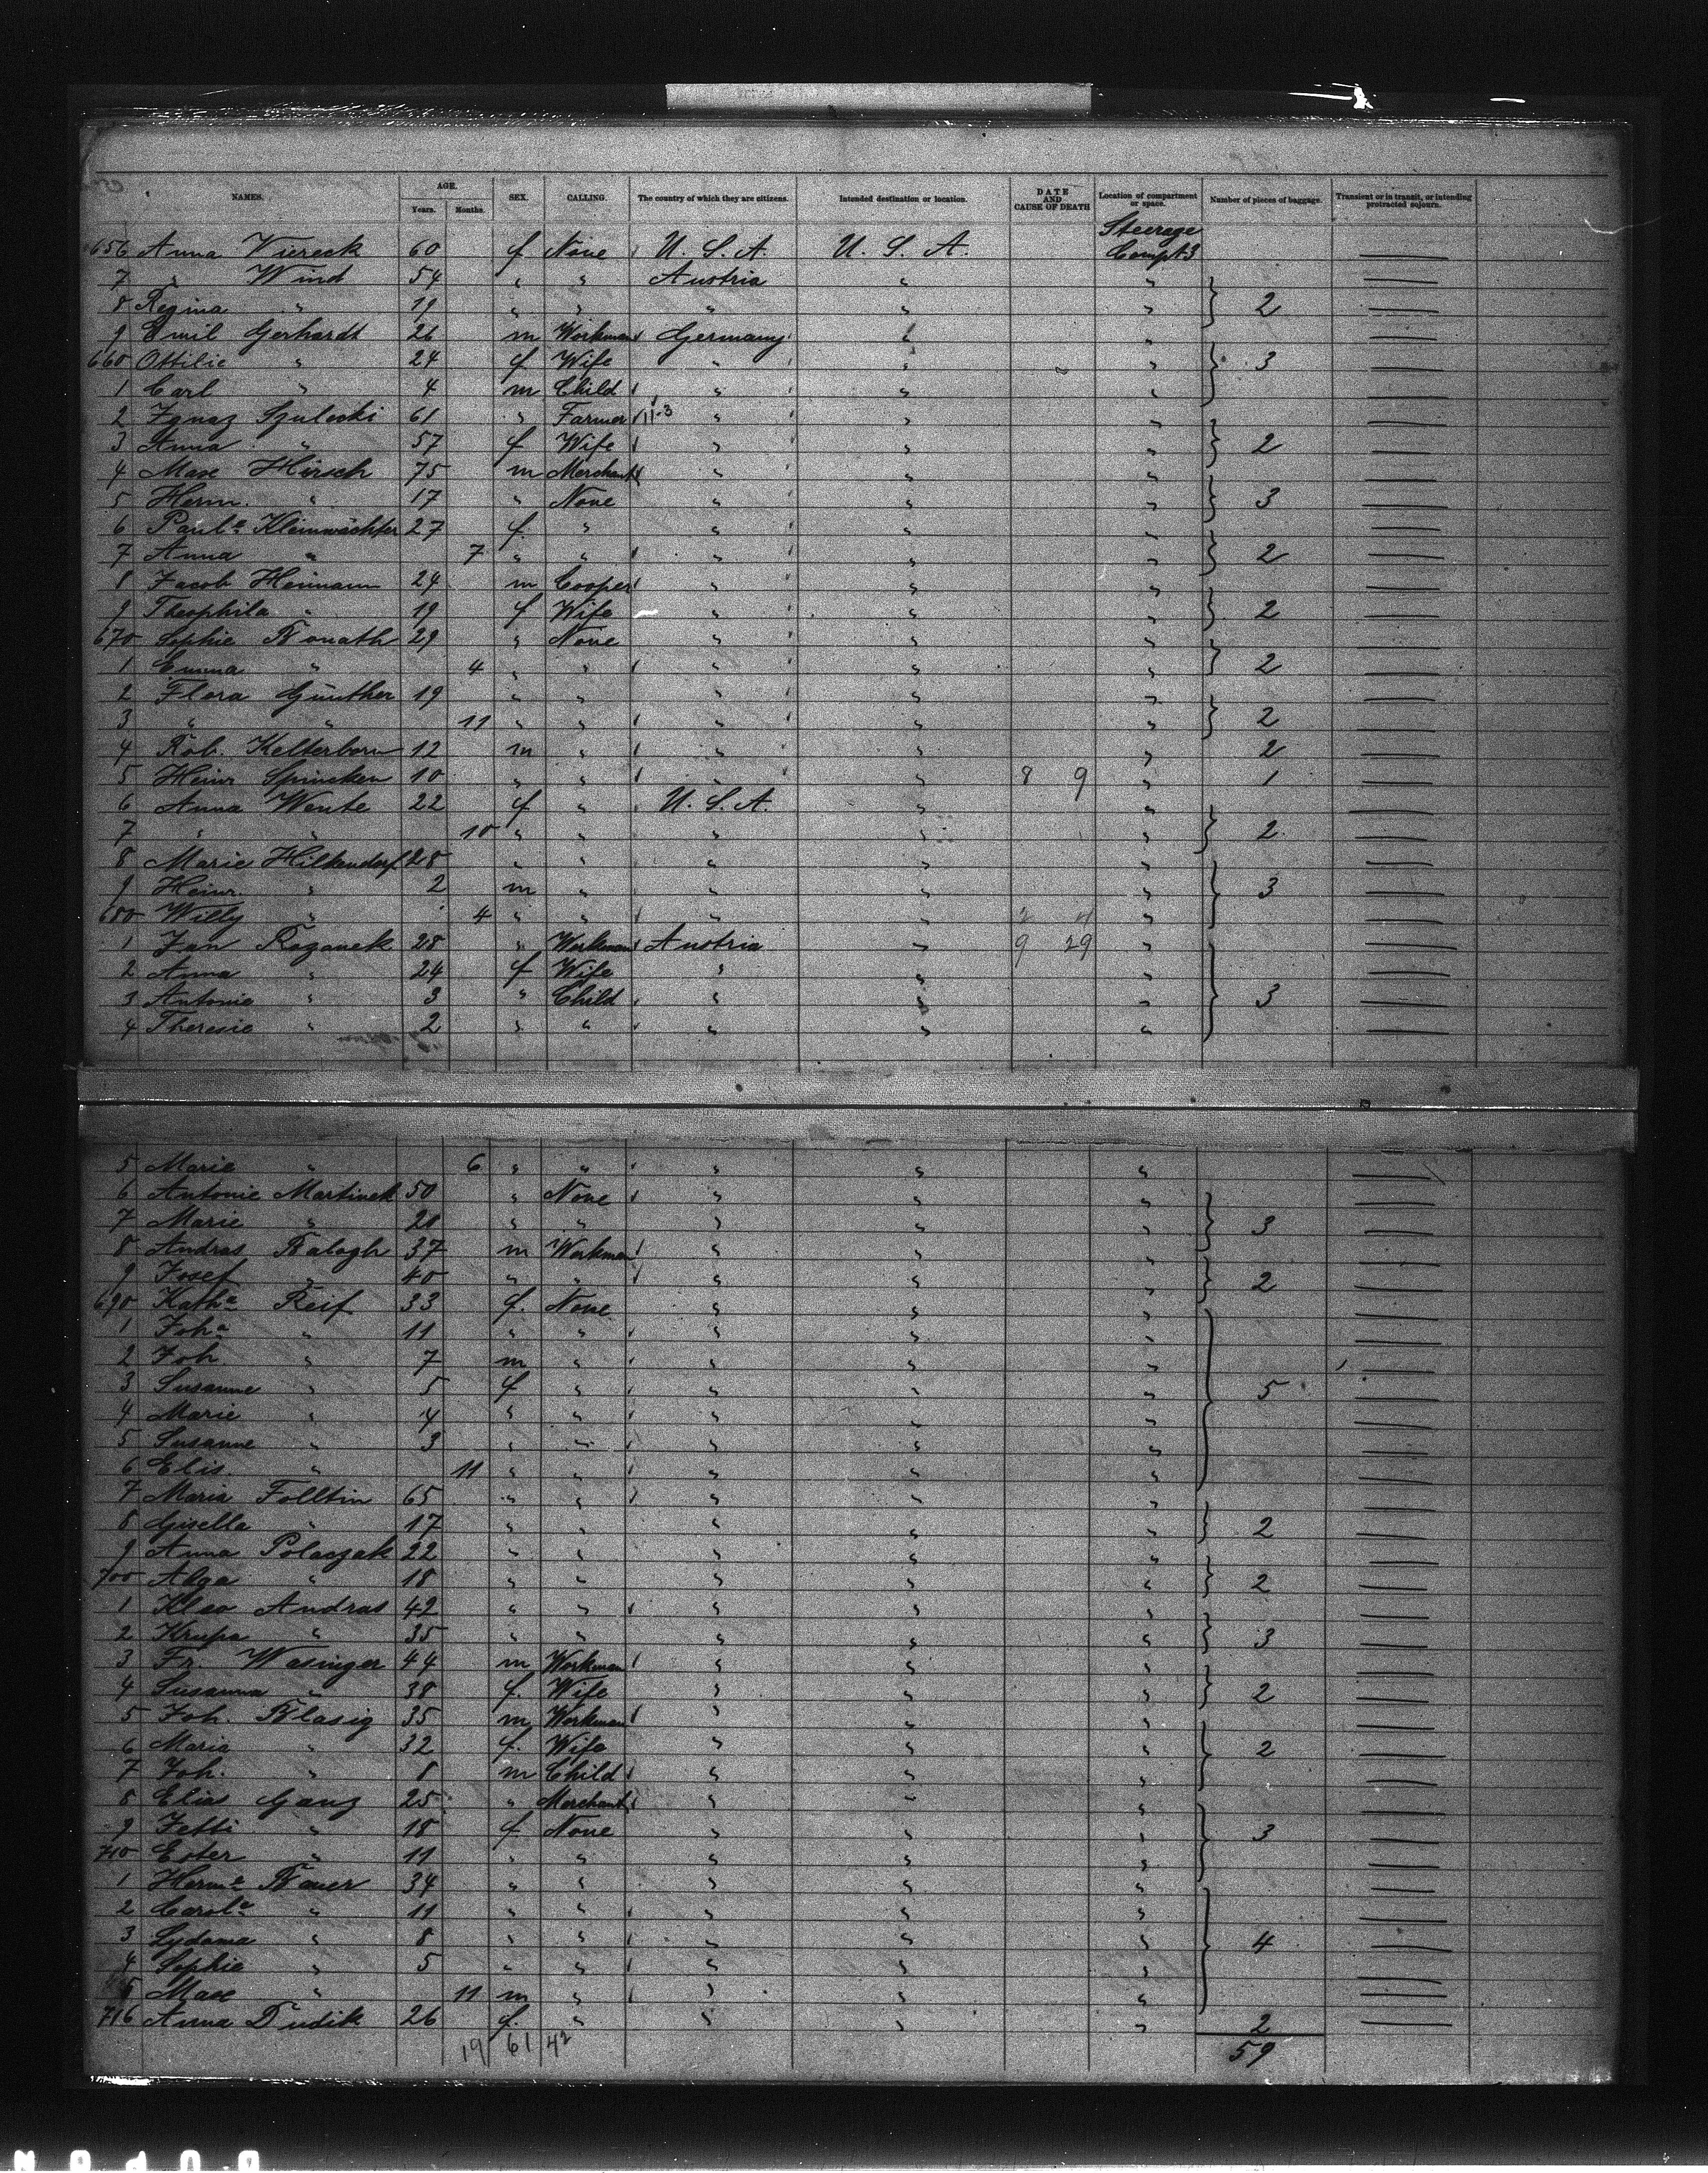 NAMES. AGE. Years. Months. SEX. CALLING. The country of which they are citizens. Intended destination or location. DATE AND CAUSE OF DEATH Location of compartment or space. Number of pieces of baggage. Transient or in transit, or intending protracted sojourn.
656 Anna Viereck 60 f None U. S. A. U. S. A. Steerage Compt 3
7 " Wind 54 " " Austria " "
8 Regina " 19 " " " " " 2
9 Emil Gerhardt 26 m Workman Germany " "
660 Ottilie " 24 f Wife " " " 3
1 Carl " 4 m Child " " "
2 Ignaz Szulecki 61 " Farmer 11-3 " " "
3 Anna " 57 f Wife " " " 2
4 Max Hirsch 75 m Merchant " " "
5 Herm. " 17 " None " " " 3
6 Paula Kleinwächter 27 f " " " "
7 Anna " 7 " " " " " 2
8 Jacob Heimann 24 m Cooper " " "
9 Theophila " 19 f Wife " " " 2
670 Sophie Bonath 29 " None " " "
1 Emma " 4 " " " " " 2
2 Flora Günther 19 " " " " "
3 " " 11 " " " " " 2
4 Rob. Kelterborn 12 m " " " " 2
5 Heinr Spincken 10 " " " " 8 9 " 1
6 Anna Wente 22 f " U. S. A. " "
7 " " 10 " " " " " 2
8 Marie Hilkendorf 28 " " " " "
9 Heinr. " 2 m " " " " 3
680 Willy " 4 " " " " "
1 Jan Rozanek 28 " Workman Austria " 9 29 "
2 Anna " 24 f Wife " " "
3 Antonie " 3 " Child " " " 3
4 Theresie " 2 " " " " "
5 Marie " 6 " " " " "
6 Antonie Martinek 50 " None " " "
7 Marie " 20 " " " " " 3
8 Andras Balogh 37 m Workman " " "
9 Josef " 40 " " " " " 2
690 Katha Reif 33 f. None " " "
1 Joha " 11 " " " " "
2 Joh. " 7 m " " " "
3 Susanne " 5 f " " " " 5
4 Marie " 4 " " " " "
5 Susanne " 3 " " " " "
6 Elis. " 11 " " " " "
7 Maria Folltin 65 " " " " "
8 Gisella " 17 " " " " " 2
9 Anna Polaczak 22 " " " " "
700 " 18 " " " " " 2
1 Andras 42 " " " " "
2 Krupa " 35 " " " " " 3
3 Fr. Wasinger 44 m Workman " " "
4 Susanna " 38 f. Wife " " " 2
5 Joh. Blasig 35 m Workman " " "
6 Maria " 32 f. Wife " " " 2
7 Joh. " 8 m Child " " "
8 Elias Ganz 25 " Merchant " " "
9 Jetti " 18 f None " " " 3
710 Ester " 11 " " " " "
1 Herma Bauer 34 " " " " "
2 Carola " 11 " " " " "
3 " 8 " " " " " 4
4 Sophie " 5 " " " " "
5 Max " 11 m " " " "
716 Anna Dudik 26 f. " " " " 2
19 61 42 59